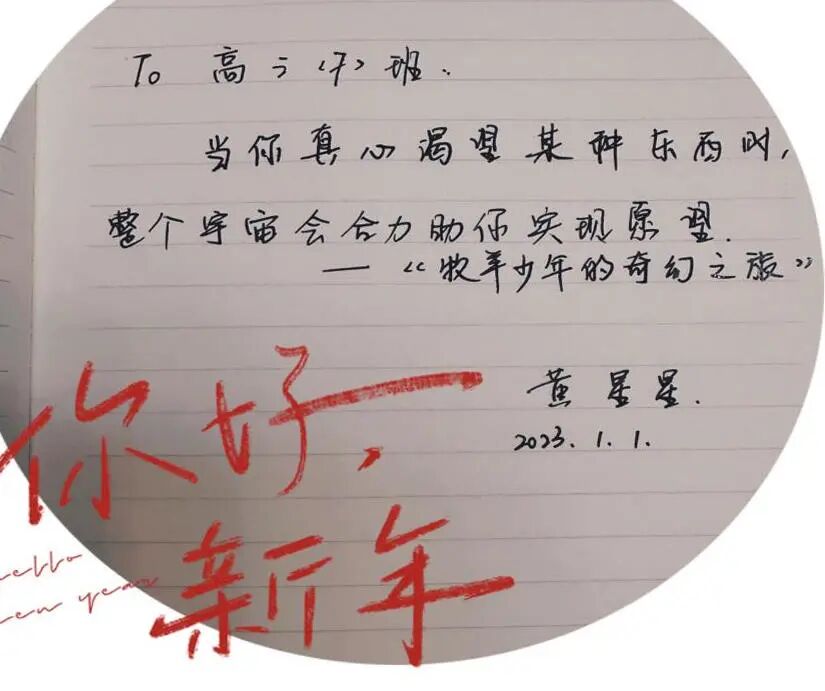 To 高三<7>班.
当你真心渴望某种东西时,
整个宇宙会合力助你实现愿望.
—《牧羊少年的奇幻之旅》
黄星星.
2023.1.1.
你好,
新年
hello
new year